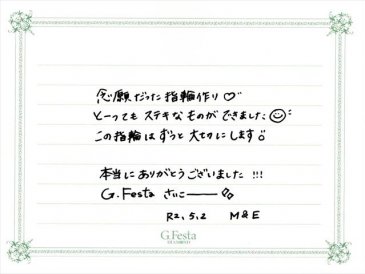 念願だった指輪作り♡
とーってもステキなものができました☺
この指輪はずっと大切にします。
本当にありがとうございました!!!
G.Festa さいこーー
R2.5.2 M&E
G.Festa